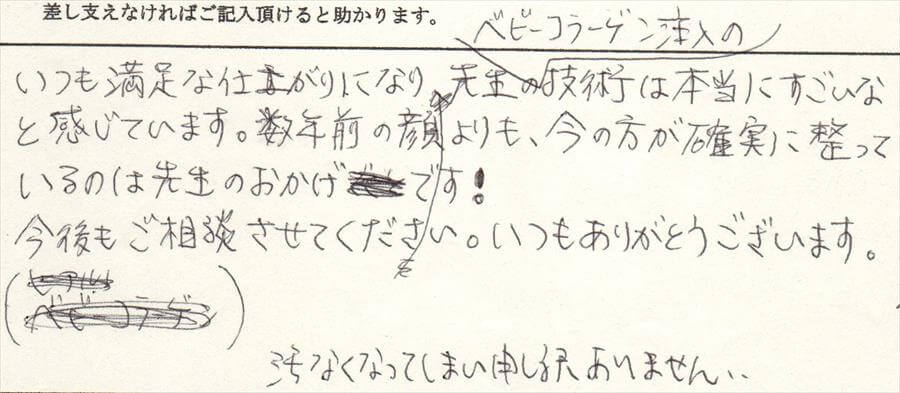 差し支えなければご記入頂けると助かります。
ベビーコラーゲン注入の
いつも満足な仕上がりになり、先生の技術は本当にすごいな
と感じています。数年前の顔よりも、今の方が確実に整って
いるのは先生のおかげです!
今後もご相談させてください。いつもありがとうございます。
を
汚なくなってしまい申し訳ありません、、